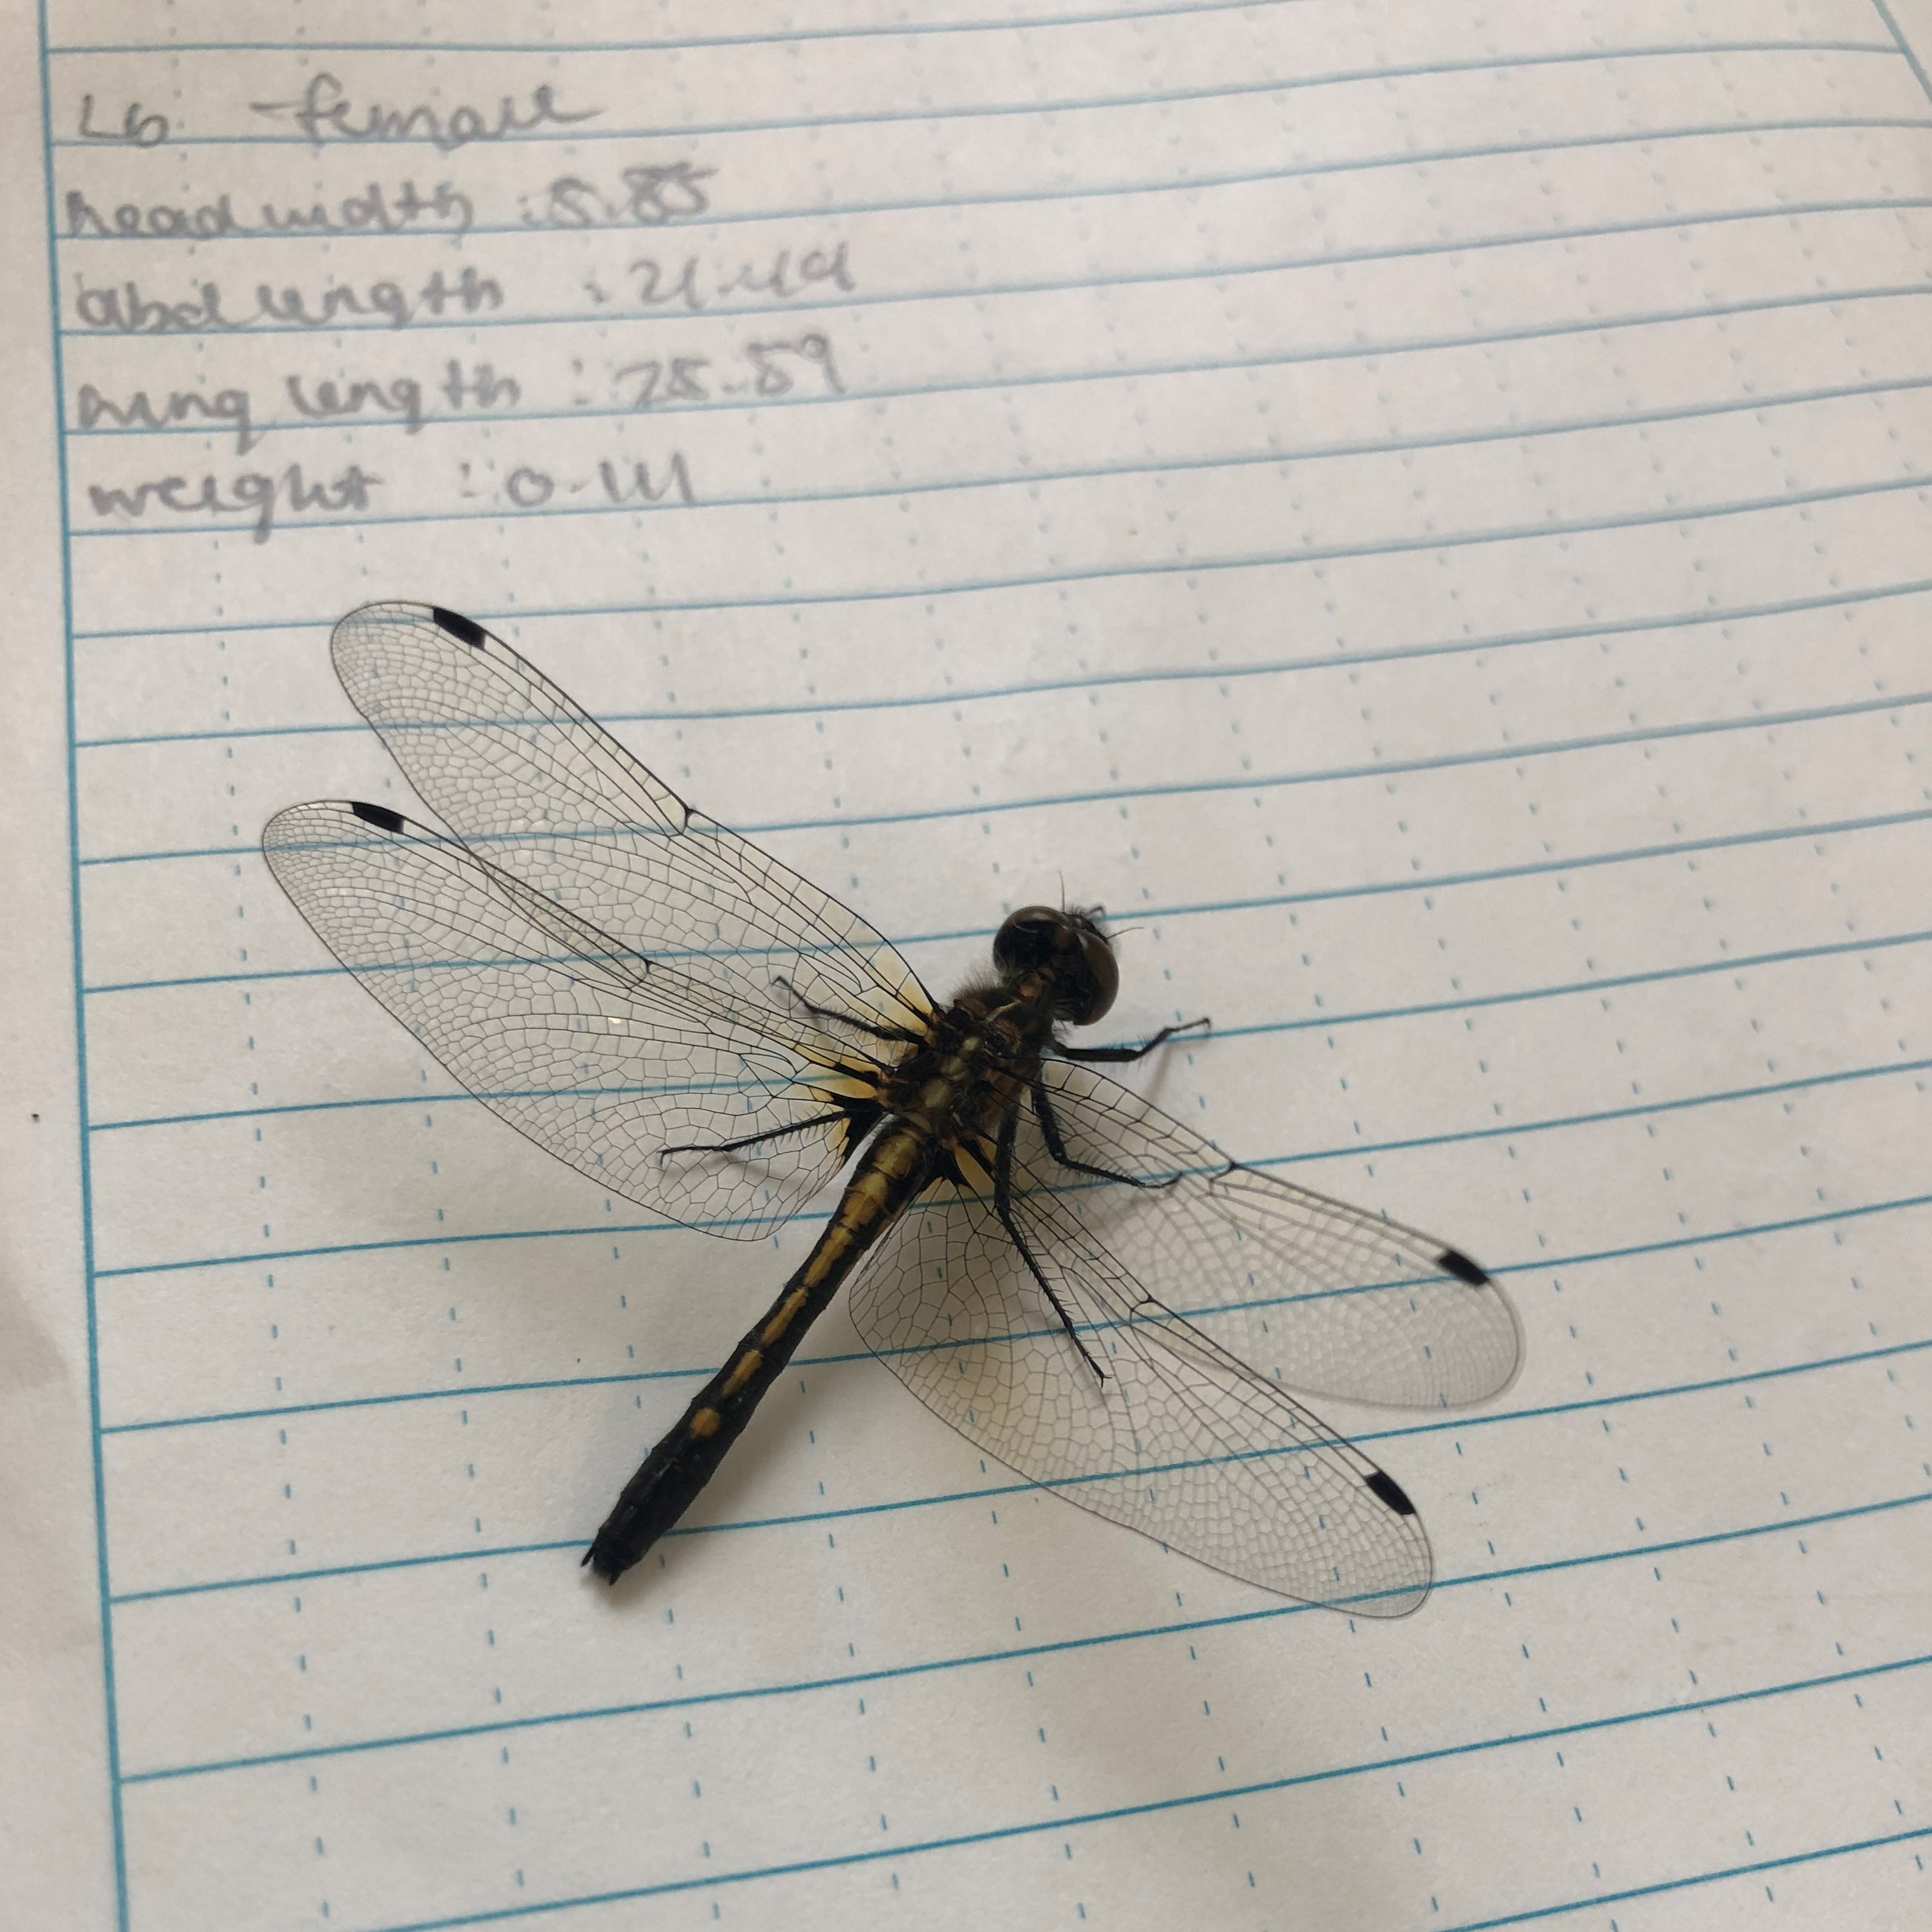 L6 female
head width : 5.85
abd length : 21.49
wing length : 28.59
weight : 0.111